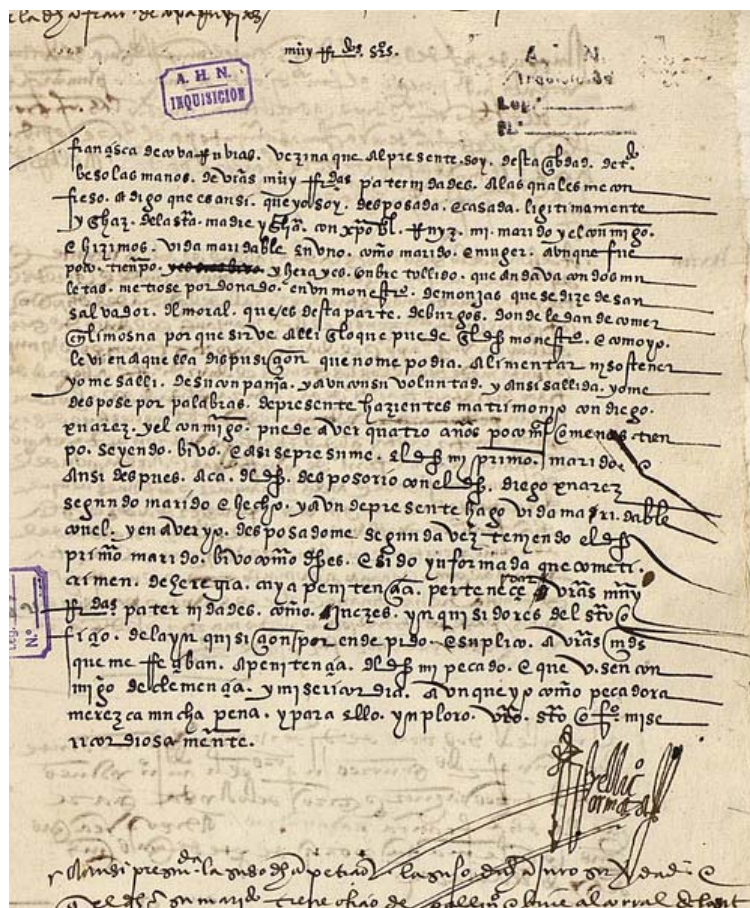 muy Rdos. Sres.
A. H. N.
INQUISICION
A. N.
Inquisición
Leg.
N.º
francisca de covaRuvias. vezina que al presente. soy. desta çibdad. de tdo.
beso las manos. de vras muy Rdas paternidades. a las quales me con
fieso. e digo que es ansi. que yo soy. desposada. e casada. ligitimamente
y ghaz. de la sta. madre yglia. con xpoval. Ruyz. mi marido y el conmigo.
e hizimos. vida maridable en uno. como marido. e muger. aunque fue
poco. tienpo. y hera y es. onbre tollido. que andava con dos mu
letas. metiose por donado. en un monesto. de monjas que se dize de san
salvador. del moral. que es desta parte. de burgos. donde le dan de comer
en limosna porque sirve alli en lo que puede en el dho monesto. e como yo.
le vi en aquella dispusiçion que no me podia. alimentar ni sostener
yo me salli. de su conpania. y aun con su voluntad. y ansi sallida. yo me
despose por palabras. de presente hazientes matrimonio con diego.
xuarez. y el conmigo. puede aver quatro años poco mas o menos tien
po. seyendo. bivo. e asi se presume. el dho mi primo. marido. e
ansi despues. aca. del dho. desposorio con el dho. diego xuarez
segundo marido e hecho. y aun de presente hago vida maridable
con el. y en aver yo. desposadome segunda vez teniendo el dho
primo marido. bivo como dho es. e sido ynformada que cometi.
crimen. de heregia. cuya penitençia. pertenece dar a vras muy
Rdas. paternidades. como. juezes. ynquisidores del sto o
fiçio. de la ynquisiçion / por ende pido. e suplico. a vras mds
que me resçiban. a penitençia. del dho mi pecado. e que usen con
migo de clemençia. y misericordia. aunque yo como pecadora
merezca mucha pena. y para ello. ynploro. vro. sto ofo. mise
ricordiosa mente.